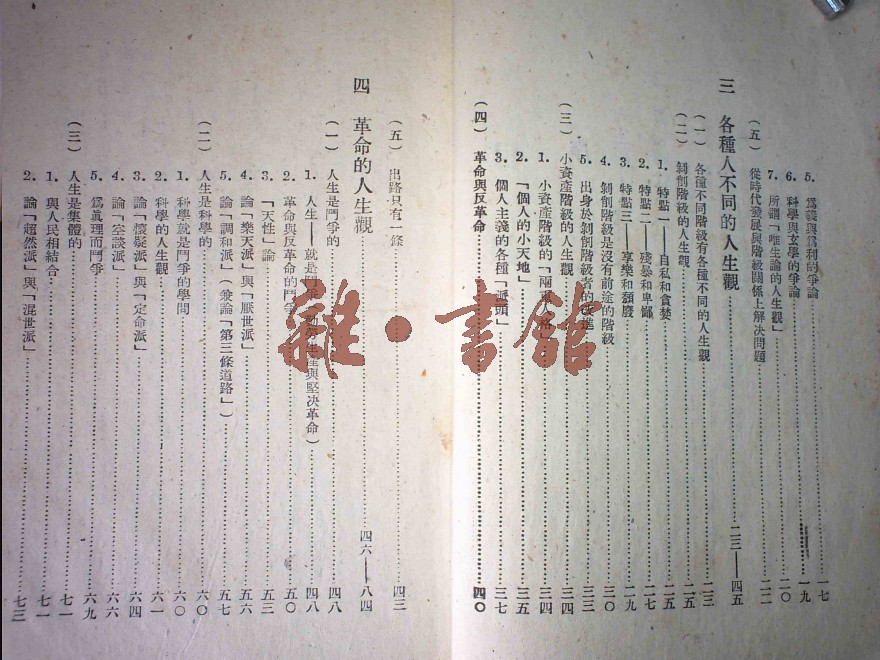 5. 爲義與爲利的爭論……一七
6. 科學與玄學的爭論……一九
7. 所謂「唯生論的人生觀」……二〇
（五） 從時代發展與階級關係上解決問題……二二
三 各種人不同的人生觀……二三——四五
（一） 各種不同階級有各種不同的人生觀……二三
（二） 剝削階級的人生觀……二五
1. 特點一——自私和貪婪……二五
2. 特點二——殘暴和卑鄙……二七
3. 特點三——享樂和頹廢……二九
4. 剝削階級是沒有前途的階級……三〇
5. 出身於剝削階級者的改造……三三
（三） 小資產階級的人生觀……三四
1. 小資產階級的「兩重人格」……三四
2. 「個人的小天地」……三五
3. 個人主義的各種「派頭」……三七
（四） 革命與反革命……四〇
（五） 出路只有一條……四三
四 革命的人生觀……四六——八四
（一） 人生是鬥爭的……四八
1. 人生——就是鬥爭（勤勞生產與堅決革命）……四八
2. 革命與反革命的鬥爭……五〇
3. 「天性」論……五三
4. 論「樂天派」與「厭世派」……五六
5. 論「調和派」（兼論「第三條道路」）……五七
（二） 人生是科學的……六〇
1. 科學就是鬥爭的學問……六〇
2. 科學的人生觀……六一
3. 論「懷疑派」與「定命派」……六四
4. 論「空談派」……六六
5. 爲眞理而鬥爭……六九
（三） 人生是集體的……七一
1. 與人民相結合……七一
2. 論「超然派」與「混世派」……七三
雜·書館